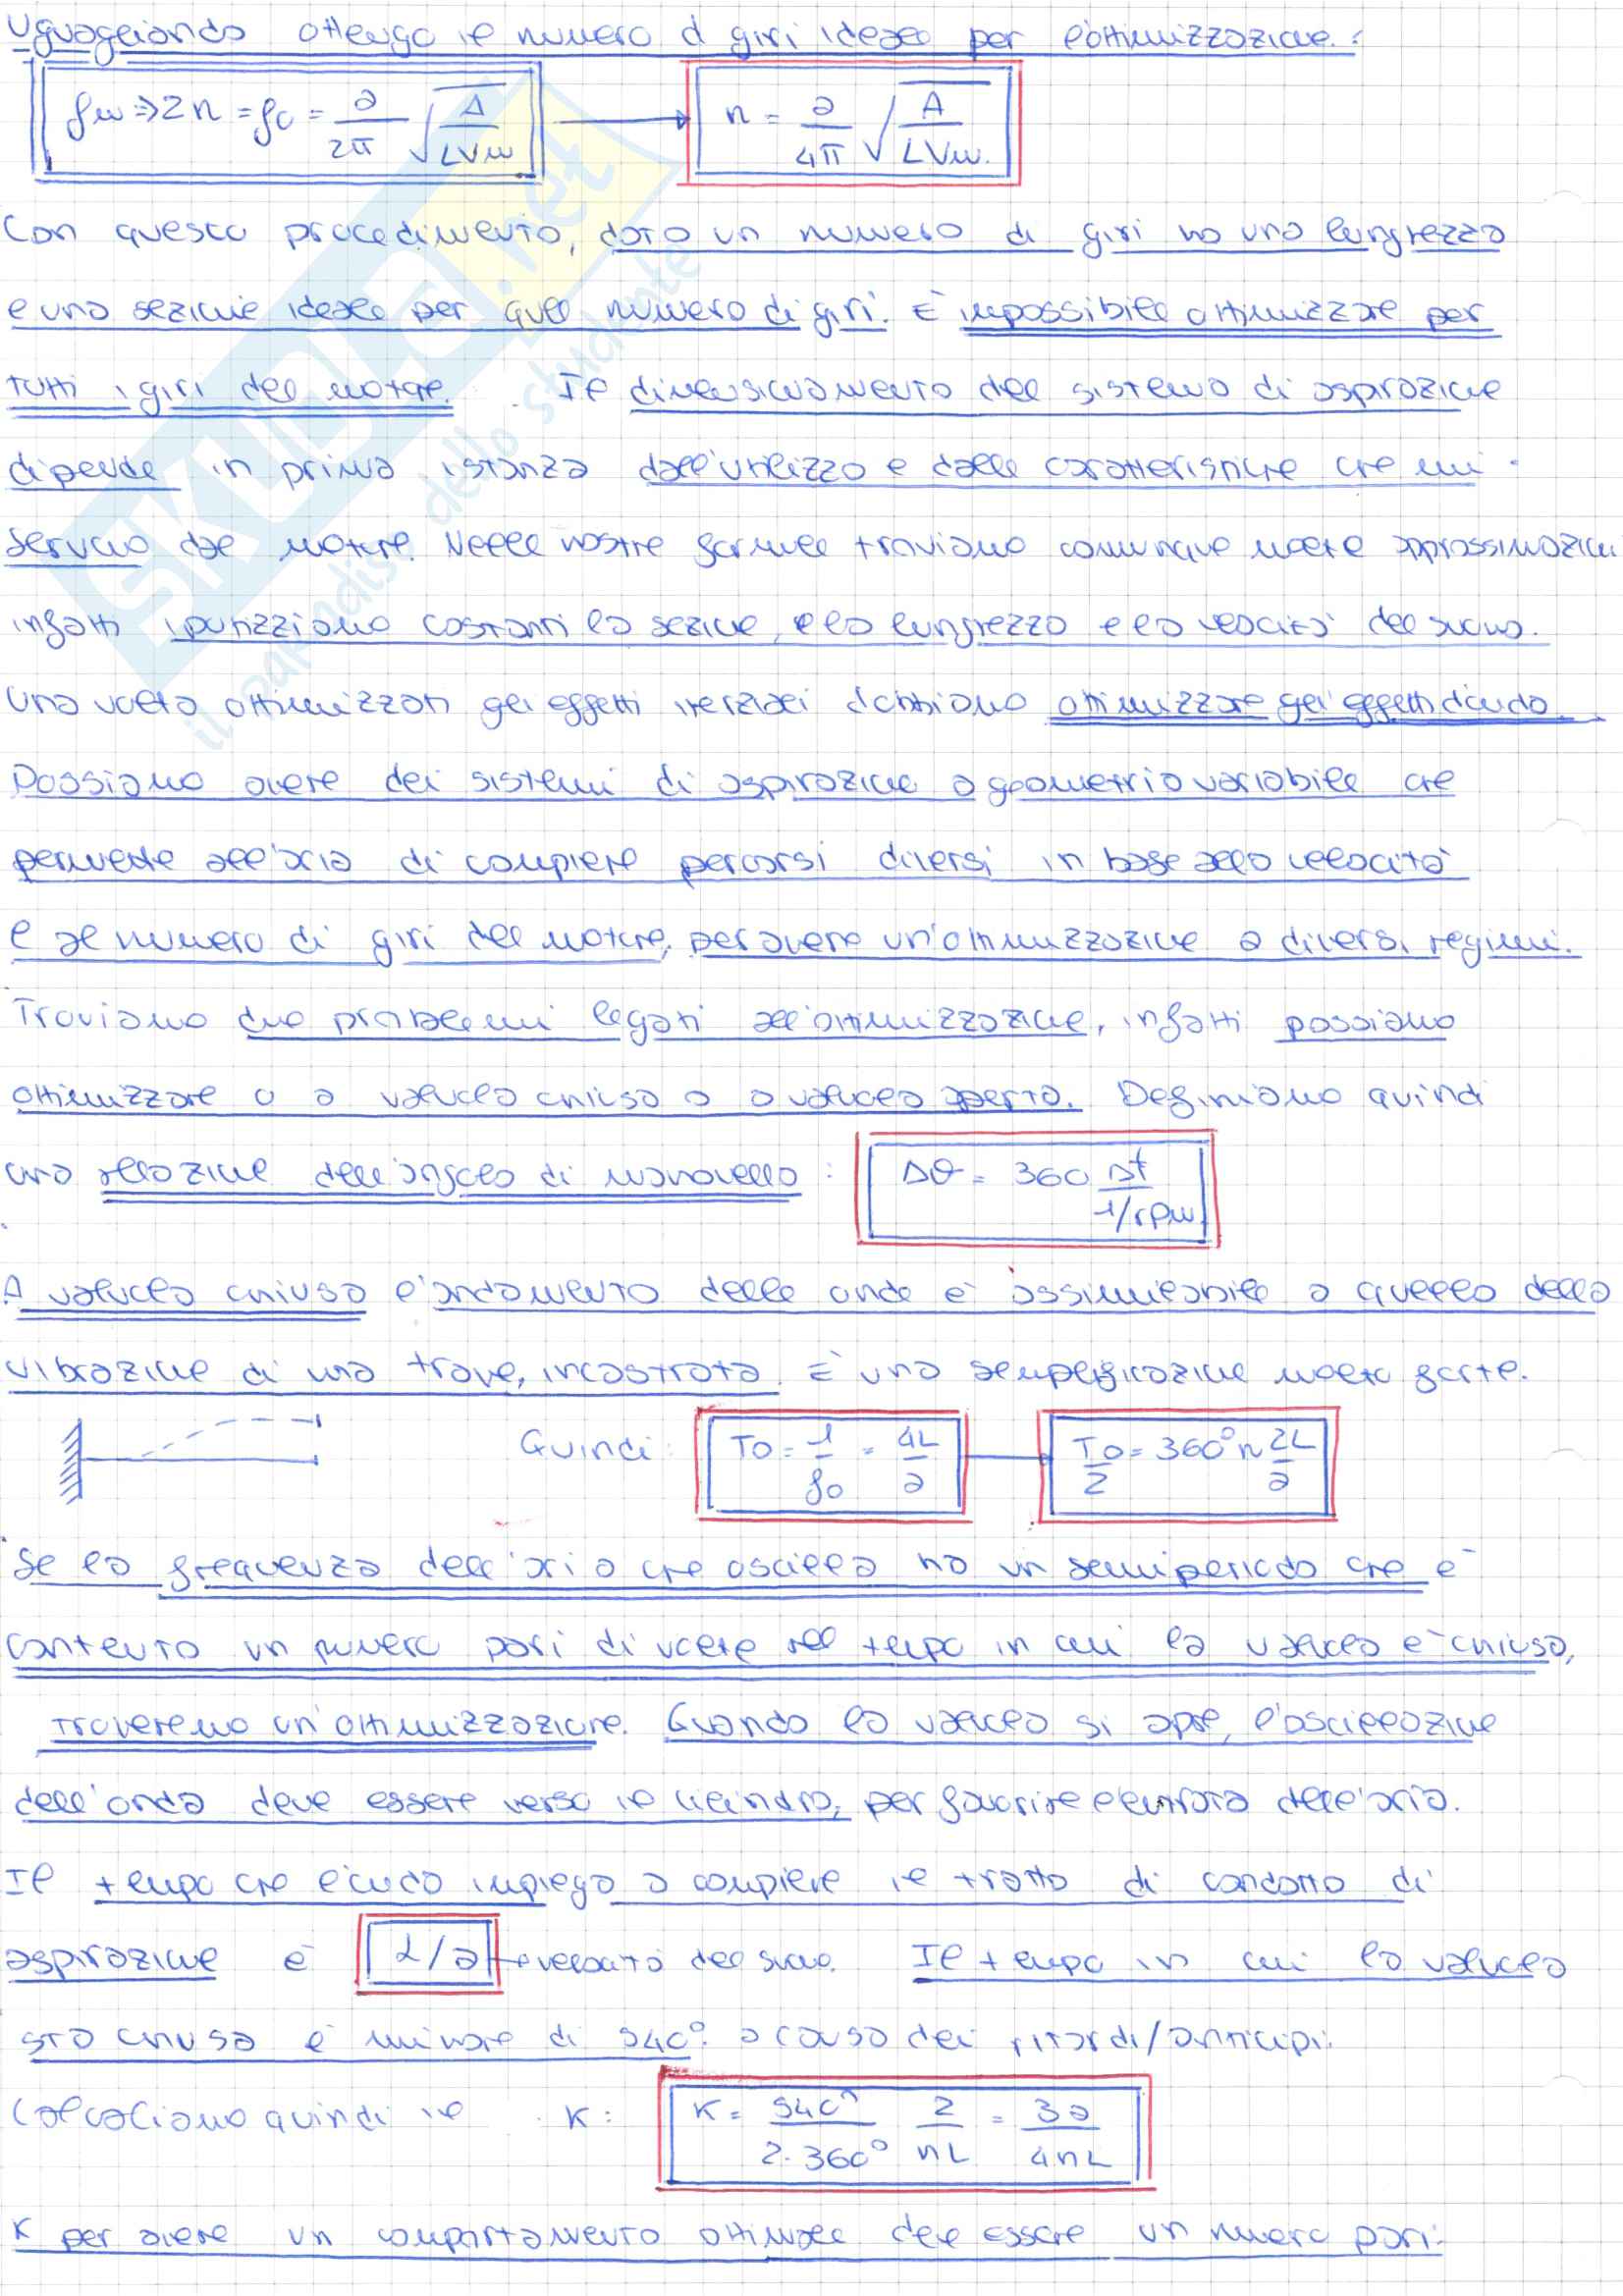 Uguagliando ottengo il numero di giri ideale per l'ottimizzazione:
fm => 2n = fo = a/2π √(A/LVm) → n = a/4π √(A/LVm)
Con questo procedimento, dato un numero di giri ho una lunghezza
e una sezione ideale per quel numero di giri. È impossibile ottimizzare per
tutti i giri del motore. Il dimensionamento del sistema di aspirazione
dipende in prima istanza dall'utilizzo e dalle caratteristiche che mi
servono dal motore. Nelle nostre formule troviamo comunque molte approssimazioni
infatti ipotizziamo costanti la sezione, e la lunghezza e la velocità del suono.
Una volta ottimizzati gli effetti inerziali dobbiamo ottimizzare gli effetti d'onda.
Possiamo avere dei sistemi di aspirazione a geometria variabile che
permette all'aria di compiere percorsi diversi in base alla velocità
e al numero di giri del motore, per avere un'ottimizzazione a diversi regimi.
Troviamo due problemi legati all'ottimizzazione, infatti possiamo
ottimizzare o a valvola chiusa o a valvola aperta. Definiamo quindi
una relazione dell'angolo di manovella: Δθ = 360 Δt/(1/rpm)
A valvola chiusa l'andamento delle onde è assimilabile a quello della
vibrazione di una trave, incastrata. È una semplificazione molto forte.
Quindi: To = 1/fo = 4L/a → To/2 = 360° n 2L/a
Se la frequenza dell'aria che oscilla ha un semiperiodo che è
contenuto un numero pari di volte nel tempo in cui la valvola è chiusa,
troveremo un'ottimizzazione. Quando la valvola si apre, l'oscillazione
dell'onda deve essere verso il cilindro, per favorire l'entrata dell'aria.
Il tempo che l'onda impiega a compiere il tratto di condotto di
aspirazione è L/a → velocità del suono. Il tempo in cui la valvola
sta chiusa è minore di 540° a causa dei ritardi/anticipi.
Calcoliamo quindi il K: K = 540°/2·360° 2/nL = 3a/4nL
K per avere un comportamento ottimale deve essere un numero pari.
il paradiso dello studente
SKUOLA.net